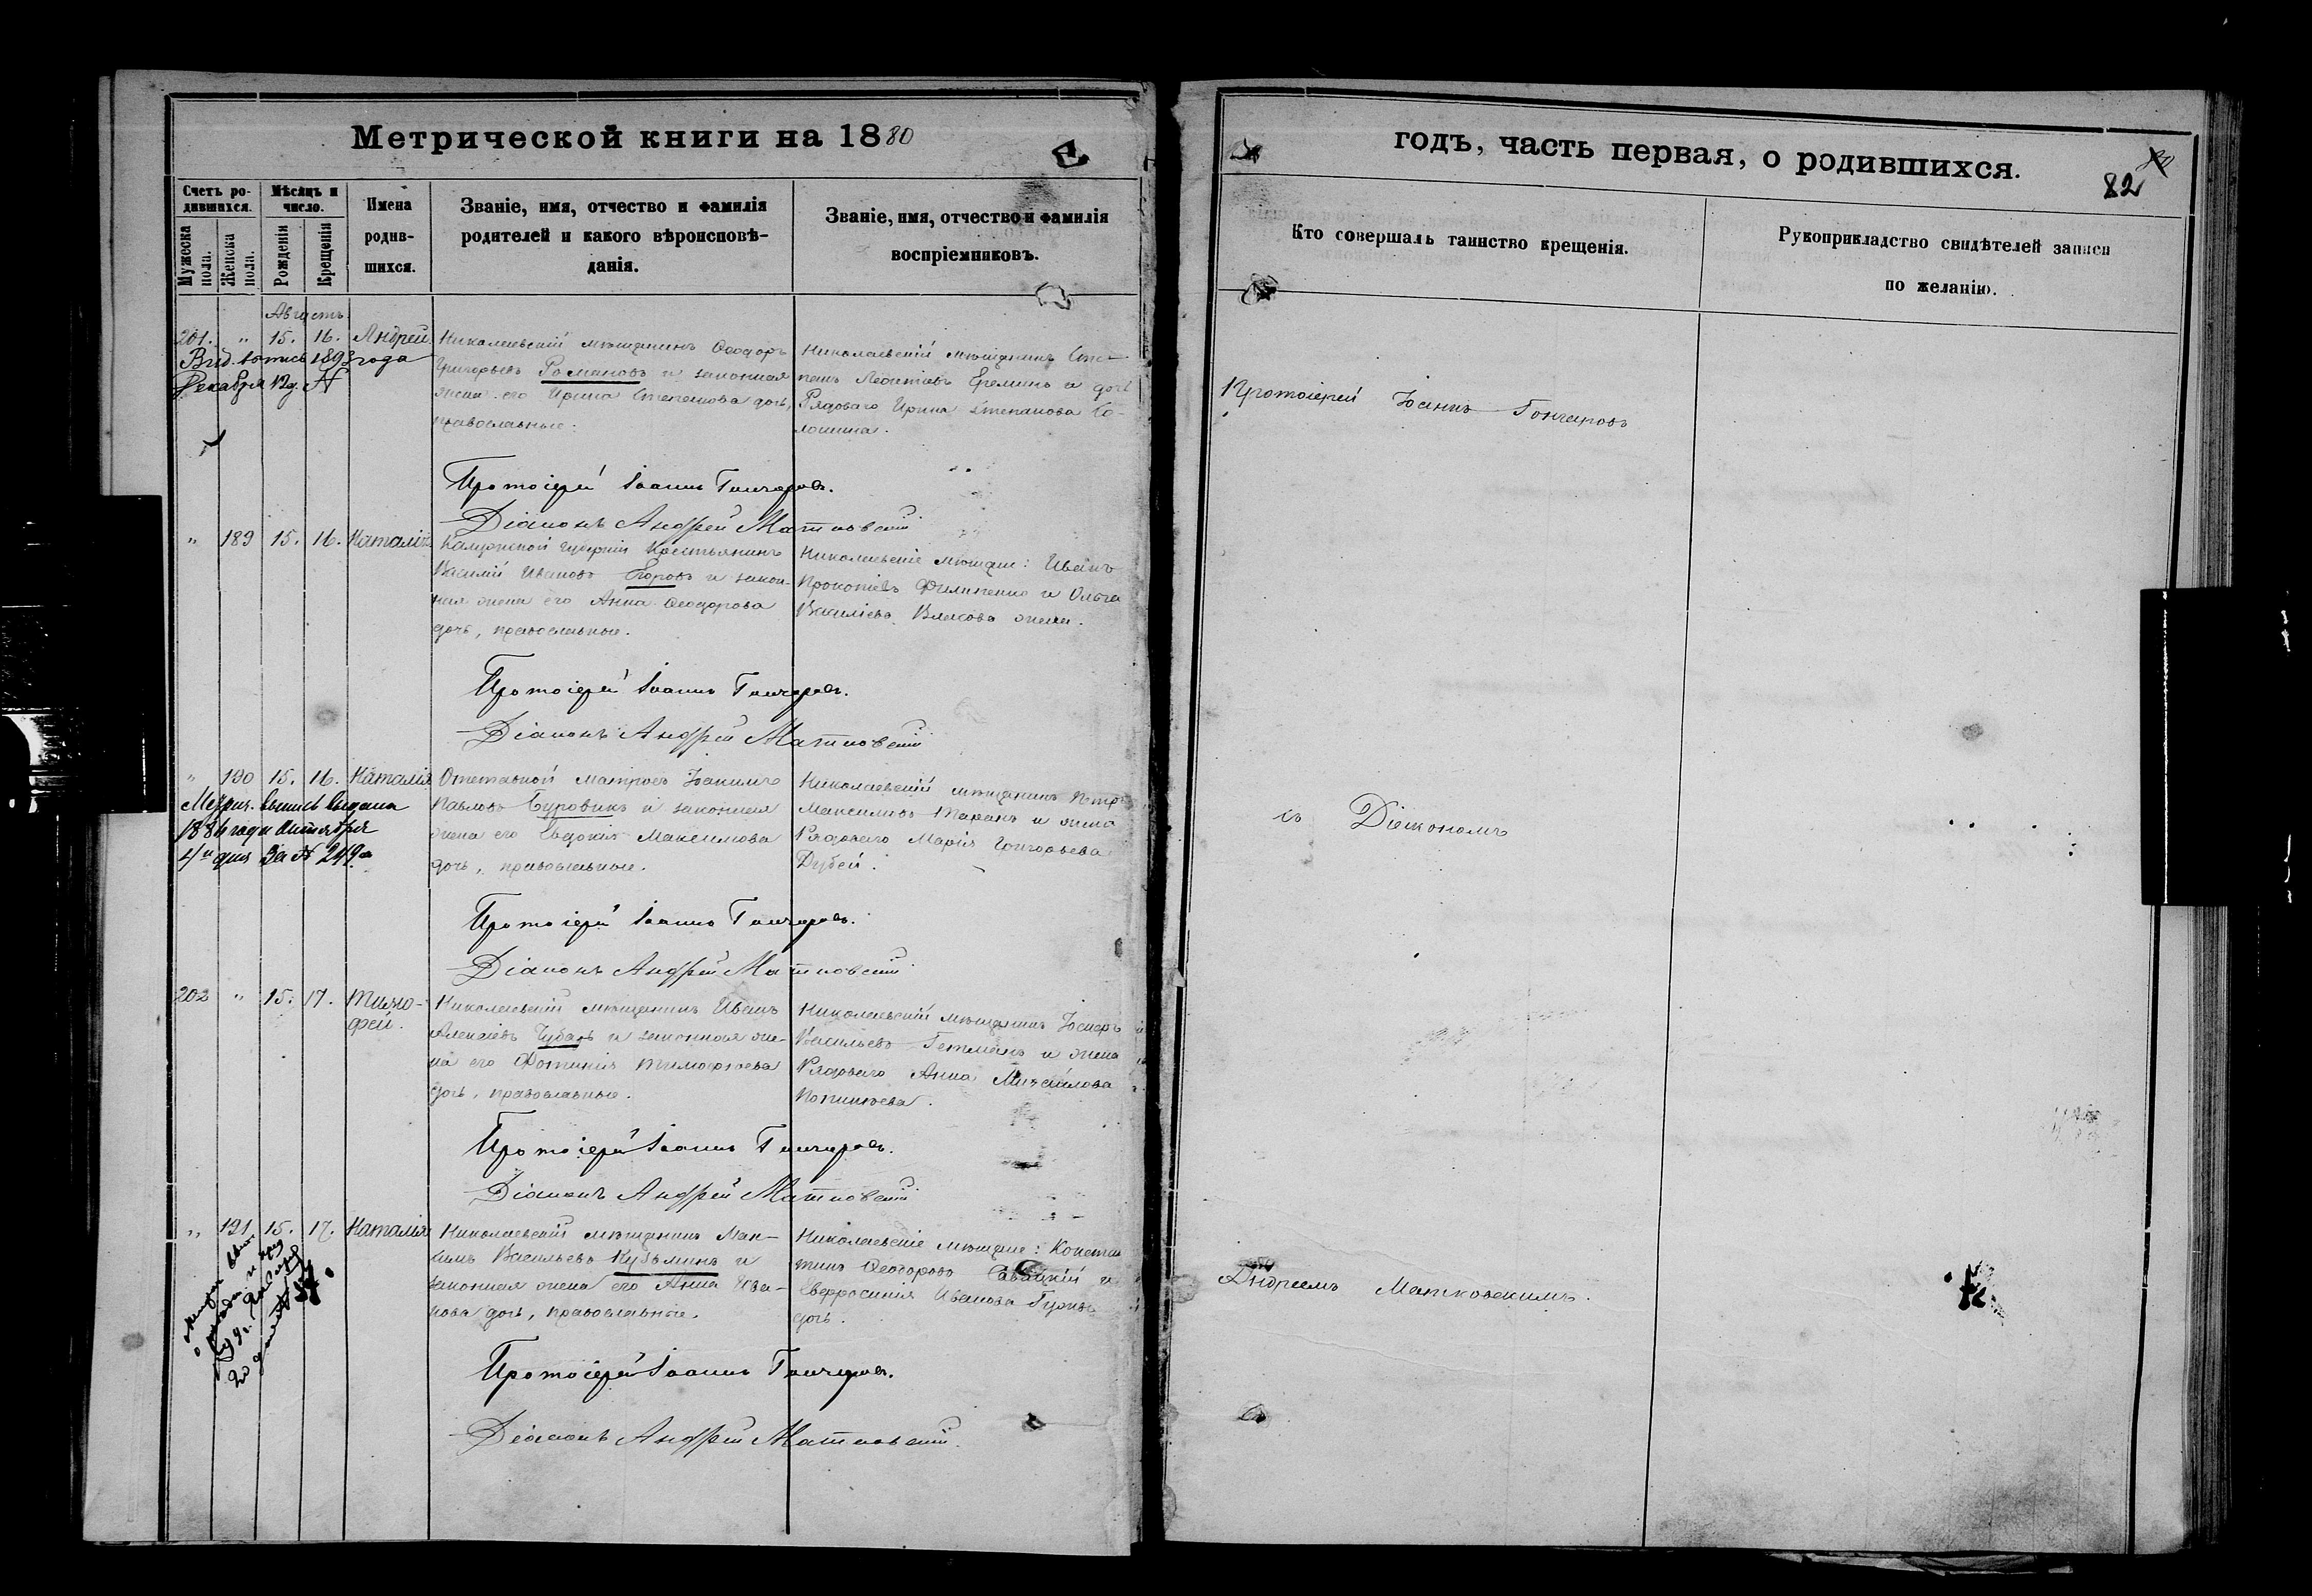 Метрической книги на 1880
Счетъ ро-
дившихся.
Мужеска пола.
Женска пола.
Мѣсяцъ и
число.
Рожденія
Крещенія
Имена
родив-
шихся.
Званіе, имя, отчество и фамилія
родителей и какого вѣроисповѣ-
данія.
Званіе, имя, отчество и фамилія
воспріемниковъ.
Августъ
201. " 15. 16. Андрей
Вид. 1893 года
Декабря 12 д. №
Николаевскій мѣщанинъ Ѳеодоръ
Григорьевъ Романовъ и законная
жена его Ирина Степанова дочь,
православные.
Николаевскій мѣщанинъ Сте-
панъ Леонтіевъ Ереминъ и дочь
Рядоваго Ирина Степанова

Протоіерей Іоаннъ Гончаровъ.
Діаконъ Андрей Матковскій
" 189 15. 16. Наталія
Калужской губерніи крестьянинъ
Василій Ивановъ Егоровъ и закон-
ная жена его Анна Ѳеодорова
дочь, православные.
Николаевскіе мѣщане: Иванъ
Прокопіевъ Филипенко и Ольга
Василіева Власова жена.
Протоіерей Іоаннъ Гончаровъ.
Діаконъ Андрей Матковскій
" 190 15. 16. Наталія
Метрич. выпись выдана
1884 года Октября
4го дня за № 249м
Отставной матросъ Іоакимъ
Павловъ Буровикъ и законная
жена его Евдокія Максимова
дочь, православные.
Николаевскій мѣщанинъ Петръ
Максимовъ Таранъ и жена
Рядоваго Марія Григорьева
Дубей.
Протоіерей Іоаннъ Гончаровъ.
Діаконъ Андрей Матковскій
202 " 15. 17. Тимо-
фей.
Николаевскій мѣщанинъ Иванъ
Алексіевъ Чубарь и законная же-
на его Фотинія Тимофѣева
дочь, православные.
Николаевскій мѣщанинъ Іосифъ
Васильевъ Гетманъ и жена
Рядоваго Анна Михайлова

Протоіерей Іоаннъ Гончаровъ.
Діаконъ Андрей Матковскій
" 191 15. 17. Наталія
Николаевскій мѣщанинъ Мак-
симъ Васильевъ Кузьминъ и
законная жена его Анна Ива-
нова дочь, православные.
Николаевскіе мѣщане: Констан
тинъ Ѳеодоровъ Савицкій и
Евфросинія Иванова
дочь.
Протоіерей Іоаннъ Гончаровъ.
Діаконъ Андрей Матковскій.
годъ, часть первая, о родившихся.
82
Кто совершалъ таинство крещенія.
Рукоприкладство свидѣтелей записи
по желанію.
Протоіерей Іоаннъ Гончаровъ
съ Діакономъ
Андреемъ Матковскимъ.